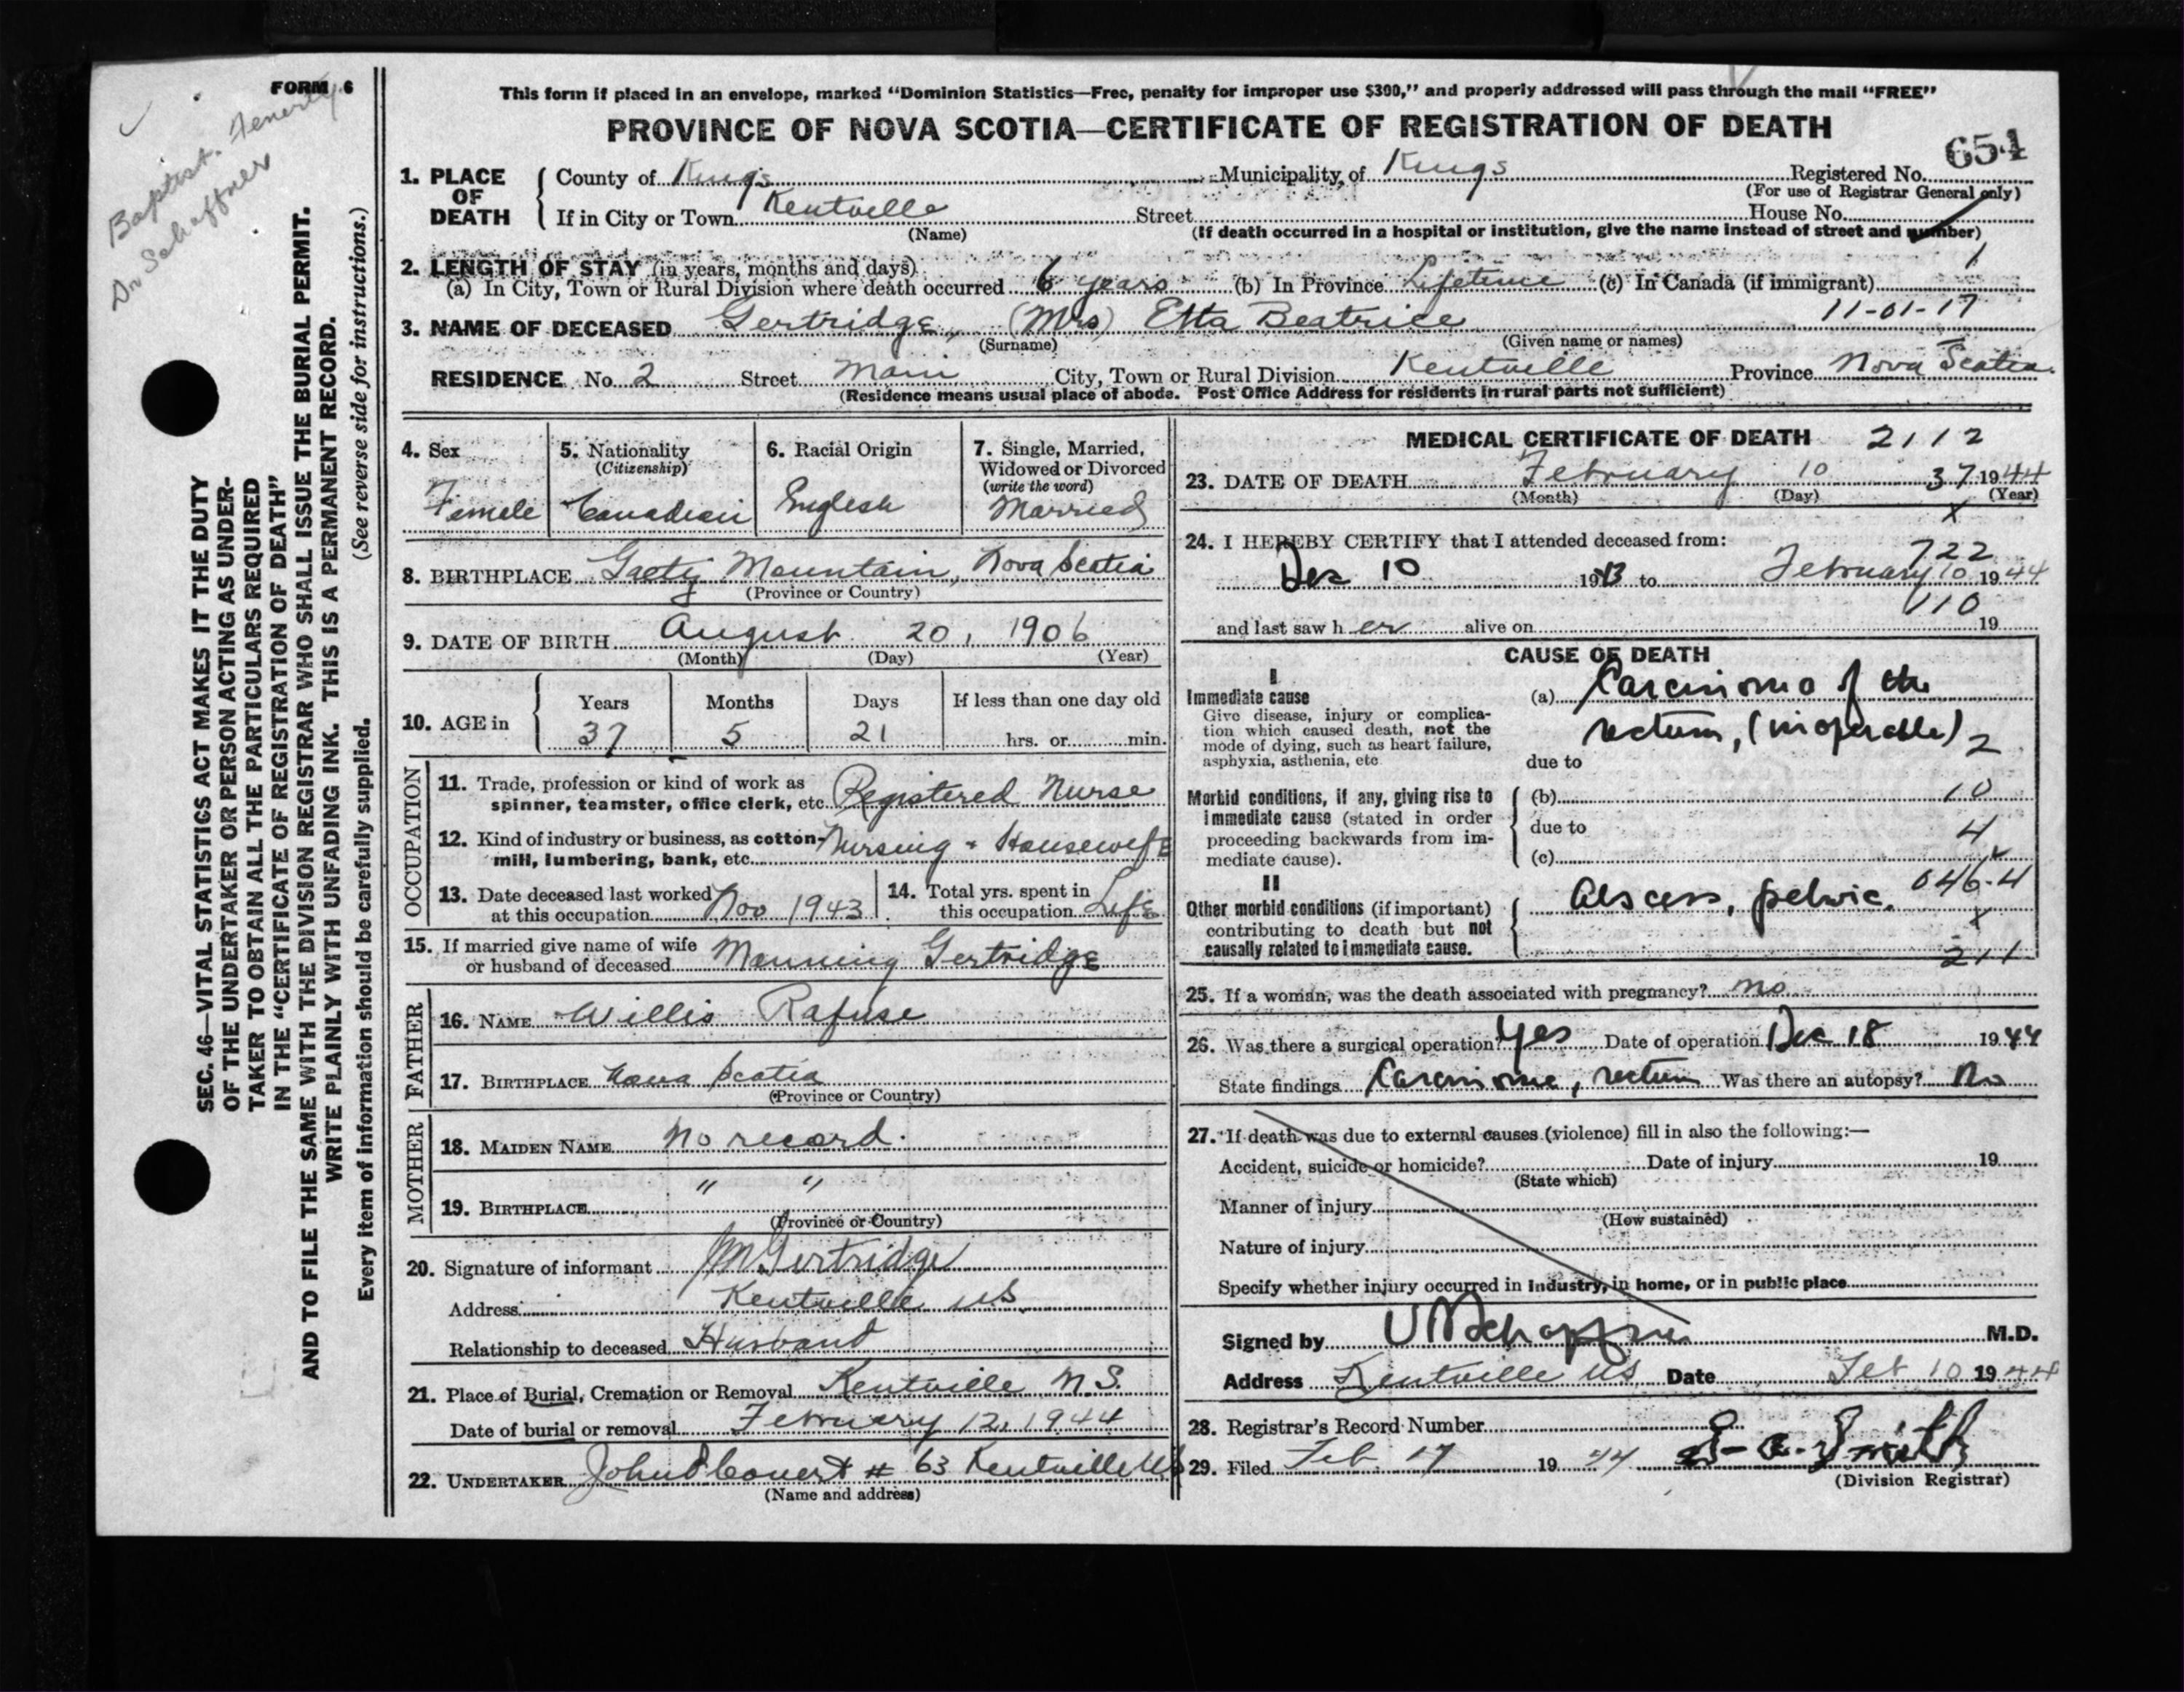 FORM 6
Baptist. Fenerty
Dr Schaffner
SEC. 46—VITAL STATISTICS ACT MAKES IT THE DUTY
OF THE UNDERTAKER OR PERSON ACTING AS UNDER-
TAKER TO OBTAIN ALL THE PARTICULARS REQUIRED
IN THE "CERTIFICATE OF REGISTRATION OF DEATH"
AND TO FILE THE SAME WITH THE DIVISION REGISTRAR WHO SHALL ISSUE THE BURIAL PERMIT.
WRITE PLAINLY WITH UNFADING INK. THIS IS A PERMANENT RECORD.
Every item of information should be carefully supplied. (See reverse side for instructions.)
This form if placed in an envelope, marked "Dominion Statistics—Free, penalty for improper use $300," and properly addressed will pass through the mail "FREE"
PROVINCE OF NOVA SCOTIA—CERTIFICATE OF REGISTRATION OF DEATH
654
1. PLACE OF DEATH County of Kings Municipality of Kings Registered No.
(For use of Registrar General only)
If in City or Town Kentville Street House No.
(Name) (If death occurred in a hospital or institution, give the name instead of street and number)
1
2. LENGTH OF STAY (in years, months and days)
(a) In City, Town or Rural Division where death occurred 6 years (b) In Province Lifetime (c) In Canada (if immigrant)
11-01-17
3. NAME OF DECEASED Gertridge, (Mrs) Etta Beatrice
(Surname) (Given name or names)
RESIDENCE No. 2 Street Main City, Town or Rural Division Kentville Province Nova Scotia
(Residence means usual place of abode. Post Office Address for residents in rural parts not sufficient)
4. Sex 5. Nationality (Citizenship) 6. Racial Origin 7. Single, Married, Widowed or Divorced (write the word)
Female Canadian English Married
8. BIRTHPLACE Mountain, Nova Scotia
(Province or Country)
9. DATE OF BIRTH August 20, 1906
(Month) (Day) (Year)
10. AGE in Years Months Days If less than one day old
37 5 21 hrs. or min.
OCCUPATION
11. Trade, profession or kind of work as
spinner, teamster, office clerk, etc. Registered Nurse
12. Kind of industry or business, as cotton-
mill, lumbering, bank, etc. Nursing + Housewife
13. Date deceased last worked
at this occupation Nov 1943
14. Total yrs. spent in
this occupation Life
15. If married give name of wife
or husband of deceased Manning Gertridge
FATHER
16. NAME Willis Rafuse
17. BIRTHPLACE Nova Scotia
(Province or Country)
MOTHER
18. MAIDEN NAME No record.
19. BIRTHPLACE " "
(Province or Country)
20. Signature of informant M Gertridge
Address Kentville NS
Relationship to deceased Husband
21. Place of Burial, Cremation or Removal Kentville N.S.
Date of burial or removal February 12, 1944
22. UNDERTAKER # 63 Kentville NS
(Name and address)
MEDICAL CERTIFICATE OF DEATH 2112
23. DATE OF DEATH February 10 37 1944
(Month) (Day) (Year)
x
24. I HEREBY CERTIFY that I attended deceased from:
722
Dec 10 1943 to February 10 1944
110
and last saw her alive on 19
CAUSE OF DEATH
I
Immediate cause
Give disease, injury or complica-
tion which caused death, not the
mode of dying, such as heart failure,
asphyxia, asthenia, etc
(a) Carcinoma of the
rectum, (inoperable) 2
due to
Morbid conditions, if any, giving rise to
immediate cause (stated in order
proceeding backwards from im-
mediate cause).
(b) 10
due to 4
(c)
II
Other morbid conditions (if important)
contributing to death but not
causally related to immediate cause.
Abscess, pelvic. 046.4
x
211
25. If a woman, was the death associated with pregnancy? no
26. Was there a surgical operation? Yes Date of operation Dec 18 1944
State findings Carcinoma, rectum Was there an autopsy? No
27. If death was due to external causes (violence) fill in also the following:—
Accident, suicide or homicide? Date of injury 19
(State which)
Manner of injury
(How sustained)
Nature of injury
Specify whether injury occurred in Industry, in home, or in public place
Signed by M.D.
Address Kentville NS Date Feb 10 1944
28. Registrar's Record Number
29. Filed Feb 17 19 44 Smith
(Division Registrar)